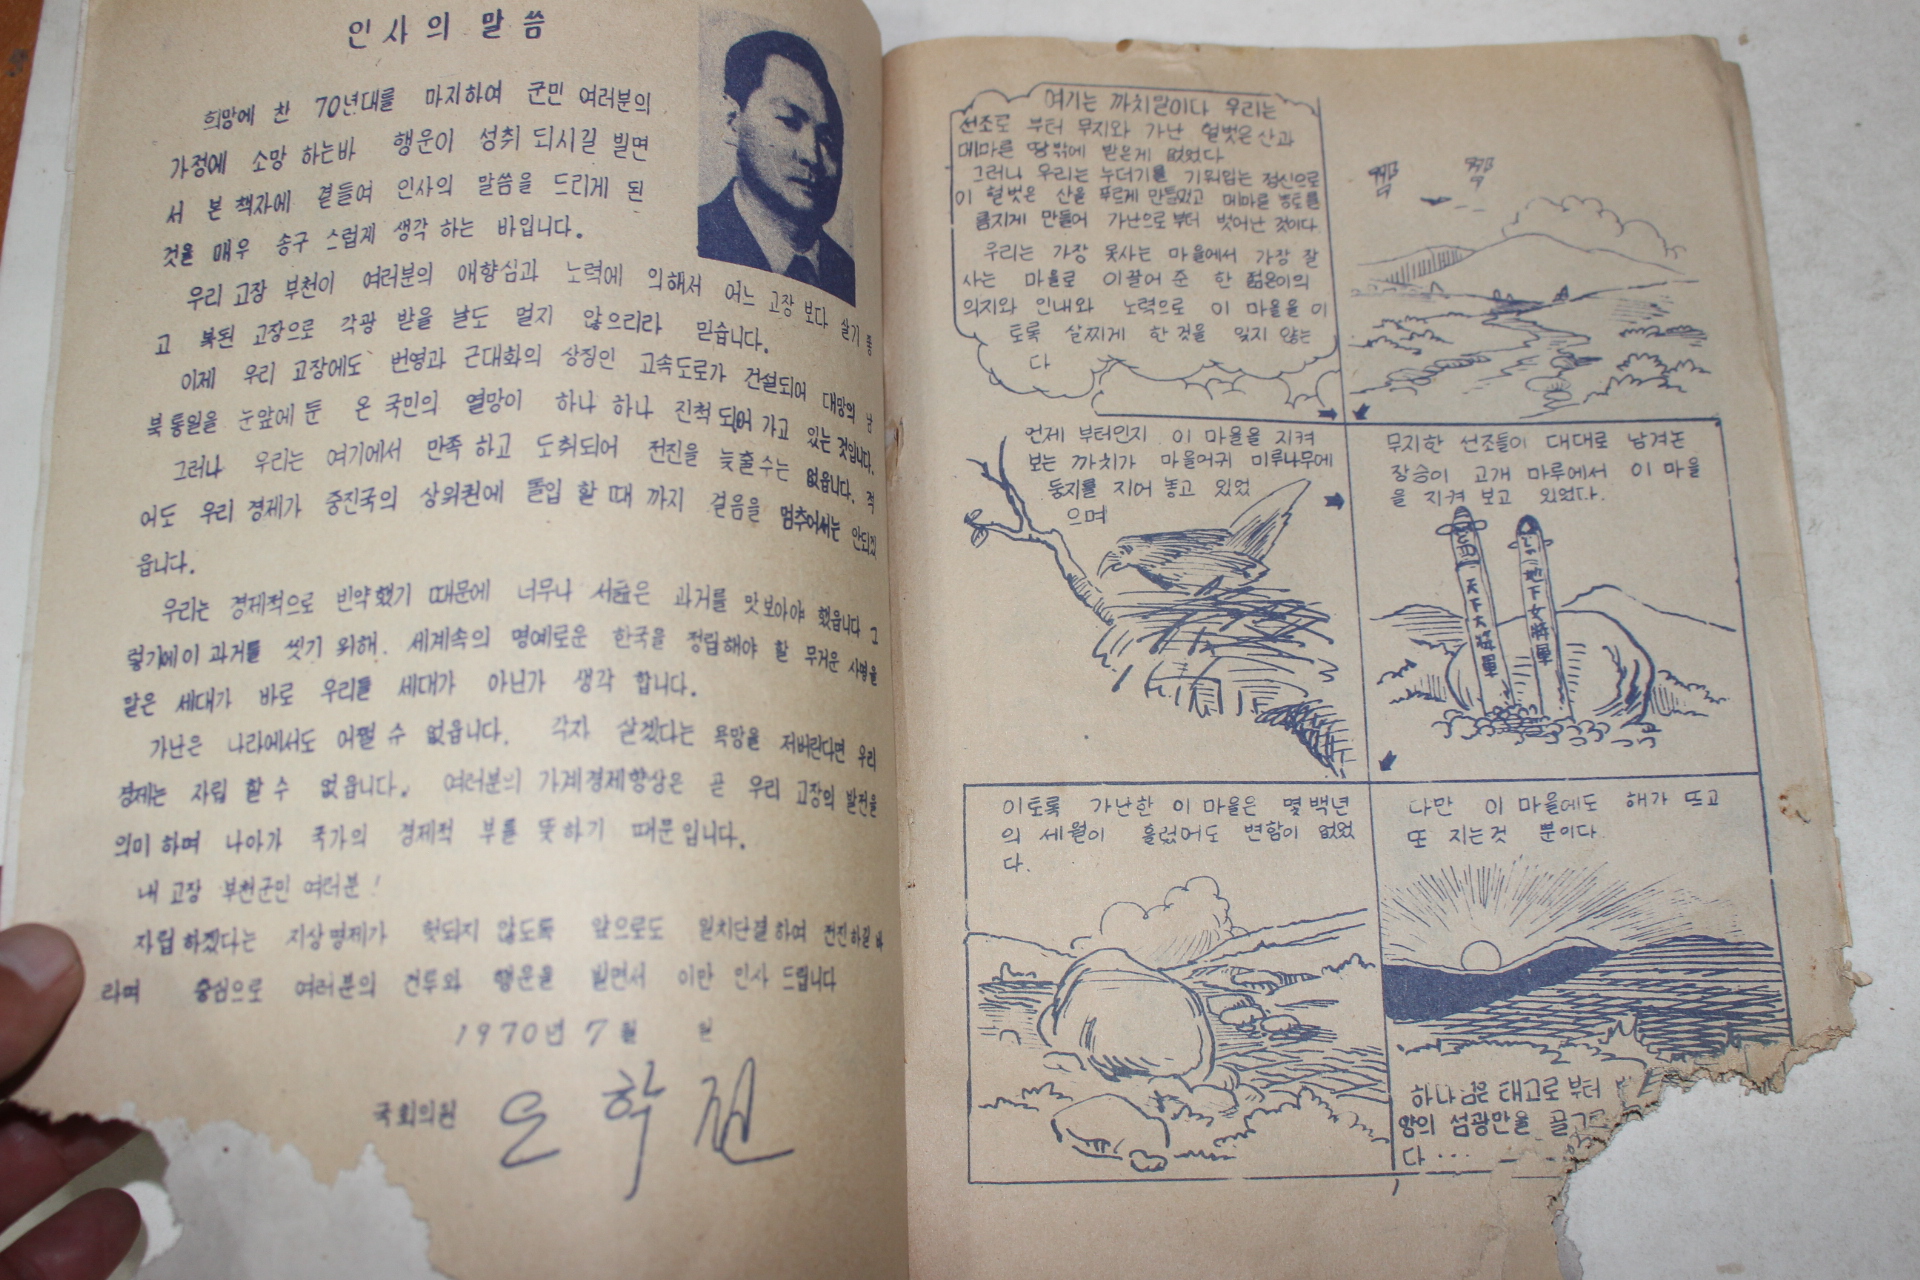 인사의 말씀
희망에 찬 70년대를 마지하여 군민 여러분의
가정에 소망 하는바 행운이 성취 되시길 빌면
서 본 책자에 곁들여 인사의 말씀을 드리게 된
것을 매우 송구 스럽게 생각 하는 바입니다.
우리 고장 부천이 여러분의 애향심과 노력에 의해서 어느 고장 보다 살기 좋
고 복된 고장으로 각광 받을 날도 멀지 않으리라 믿습니다.
이제 우리 고장에도 번영과 근대화의 상징인 고속도로가 건설되어 대망의 남
북통일을 눈앞에 둔 온 국민의 열망이 하나 하나 진척 되어 가고 있는 것입니다.
그러나 우리는 여기에서 만족 하고 도취되어 전진을 늦출 수는 없읍니다. 적
어도 우리 경제가 중진국의 상위권에 돌입 할 때 까지 걸음을 멈추어서는 안되겠
읍니다.
우리는 경제적으로 빈약했기 때문에 너무나 서글은 과거를 맛보아야 했읍니다 그
렇기에 이 과거를 씻기 위해. 세계속의 명예로운 한국을 정립해야 할 무거운 사명을
맡은 세대가 바로 우리들 세대가 아닌가 생각 합니다.
가난은 나라에서도 어쩔 수 없읍니다. 각자 살겠다는 욕망을 저버린다면 우리
경제는 자립 할 수 없읍니다. 여러분의 가계경제향상은 곧 우리 고장의 발전을
의미 하며 나아가 국가의 경제적 부를 뜻하기 때문 입니다.
내 고장 부천군민 여러분!
자립 하겠다는 지상명제가 헛되지 않도록 앞으로도 일치단결하여 전진하길 바
라며 충심으로 여러분의 건투와 행운을 빌면서 이만 인사 드립니다
1970년 7월 일
국회의원 오학진
여기는 까치말이다 우리는
선조로 부터 무지와 가난 헐벗은 산과
메마른 땅밖에 받은게 없었다
그러나 우리는 누더기를 기워입는 정신으로
이 헐벗은 산을 푸르게 만들었고 메마른 농토를
름지게 만들어 가난으로 부터 벗어난 것이다.
우리는 가장 못사는 마을에서 가장 잘
사는 마을로 이끌어 준 한 젊은이의
의지와 인내와 노력으로 이 마을을 이
토록 살찌게 한 것을 잊지 않는
다
언제 부터인지 이 마을을 지켜
보는 까치가 마을어귀 미루나무에
둥지를 지어 놓고 있었
으며
무지한 선조들이 대대로 남겨논
장승이 고개 마루에서 이 마을
을 지켜 보고 있었다.
天下大將軍
地下女將軍
이토록 가난한 이 마을은 몇 백년
의 세월이 흘렀어도 변함이 없었
다.
다만 이 마을에도 해가 뜨고
또 지는 것 뿐이다.
하나님은 태고로 부터
양의 섬광만을 골고
다...